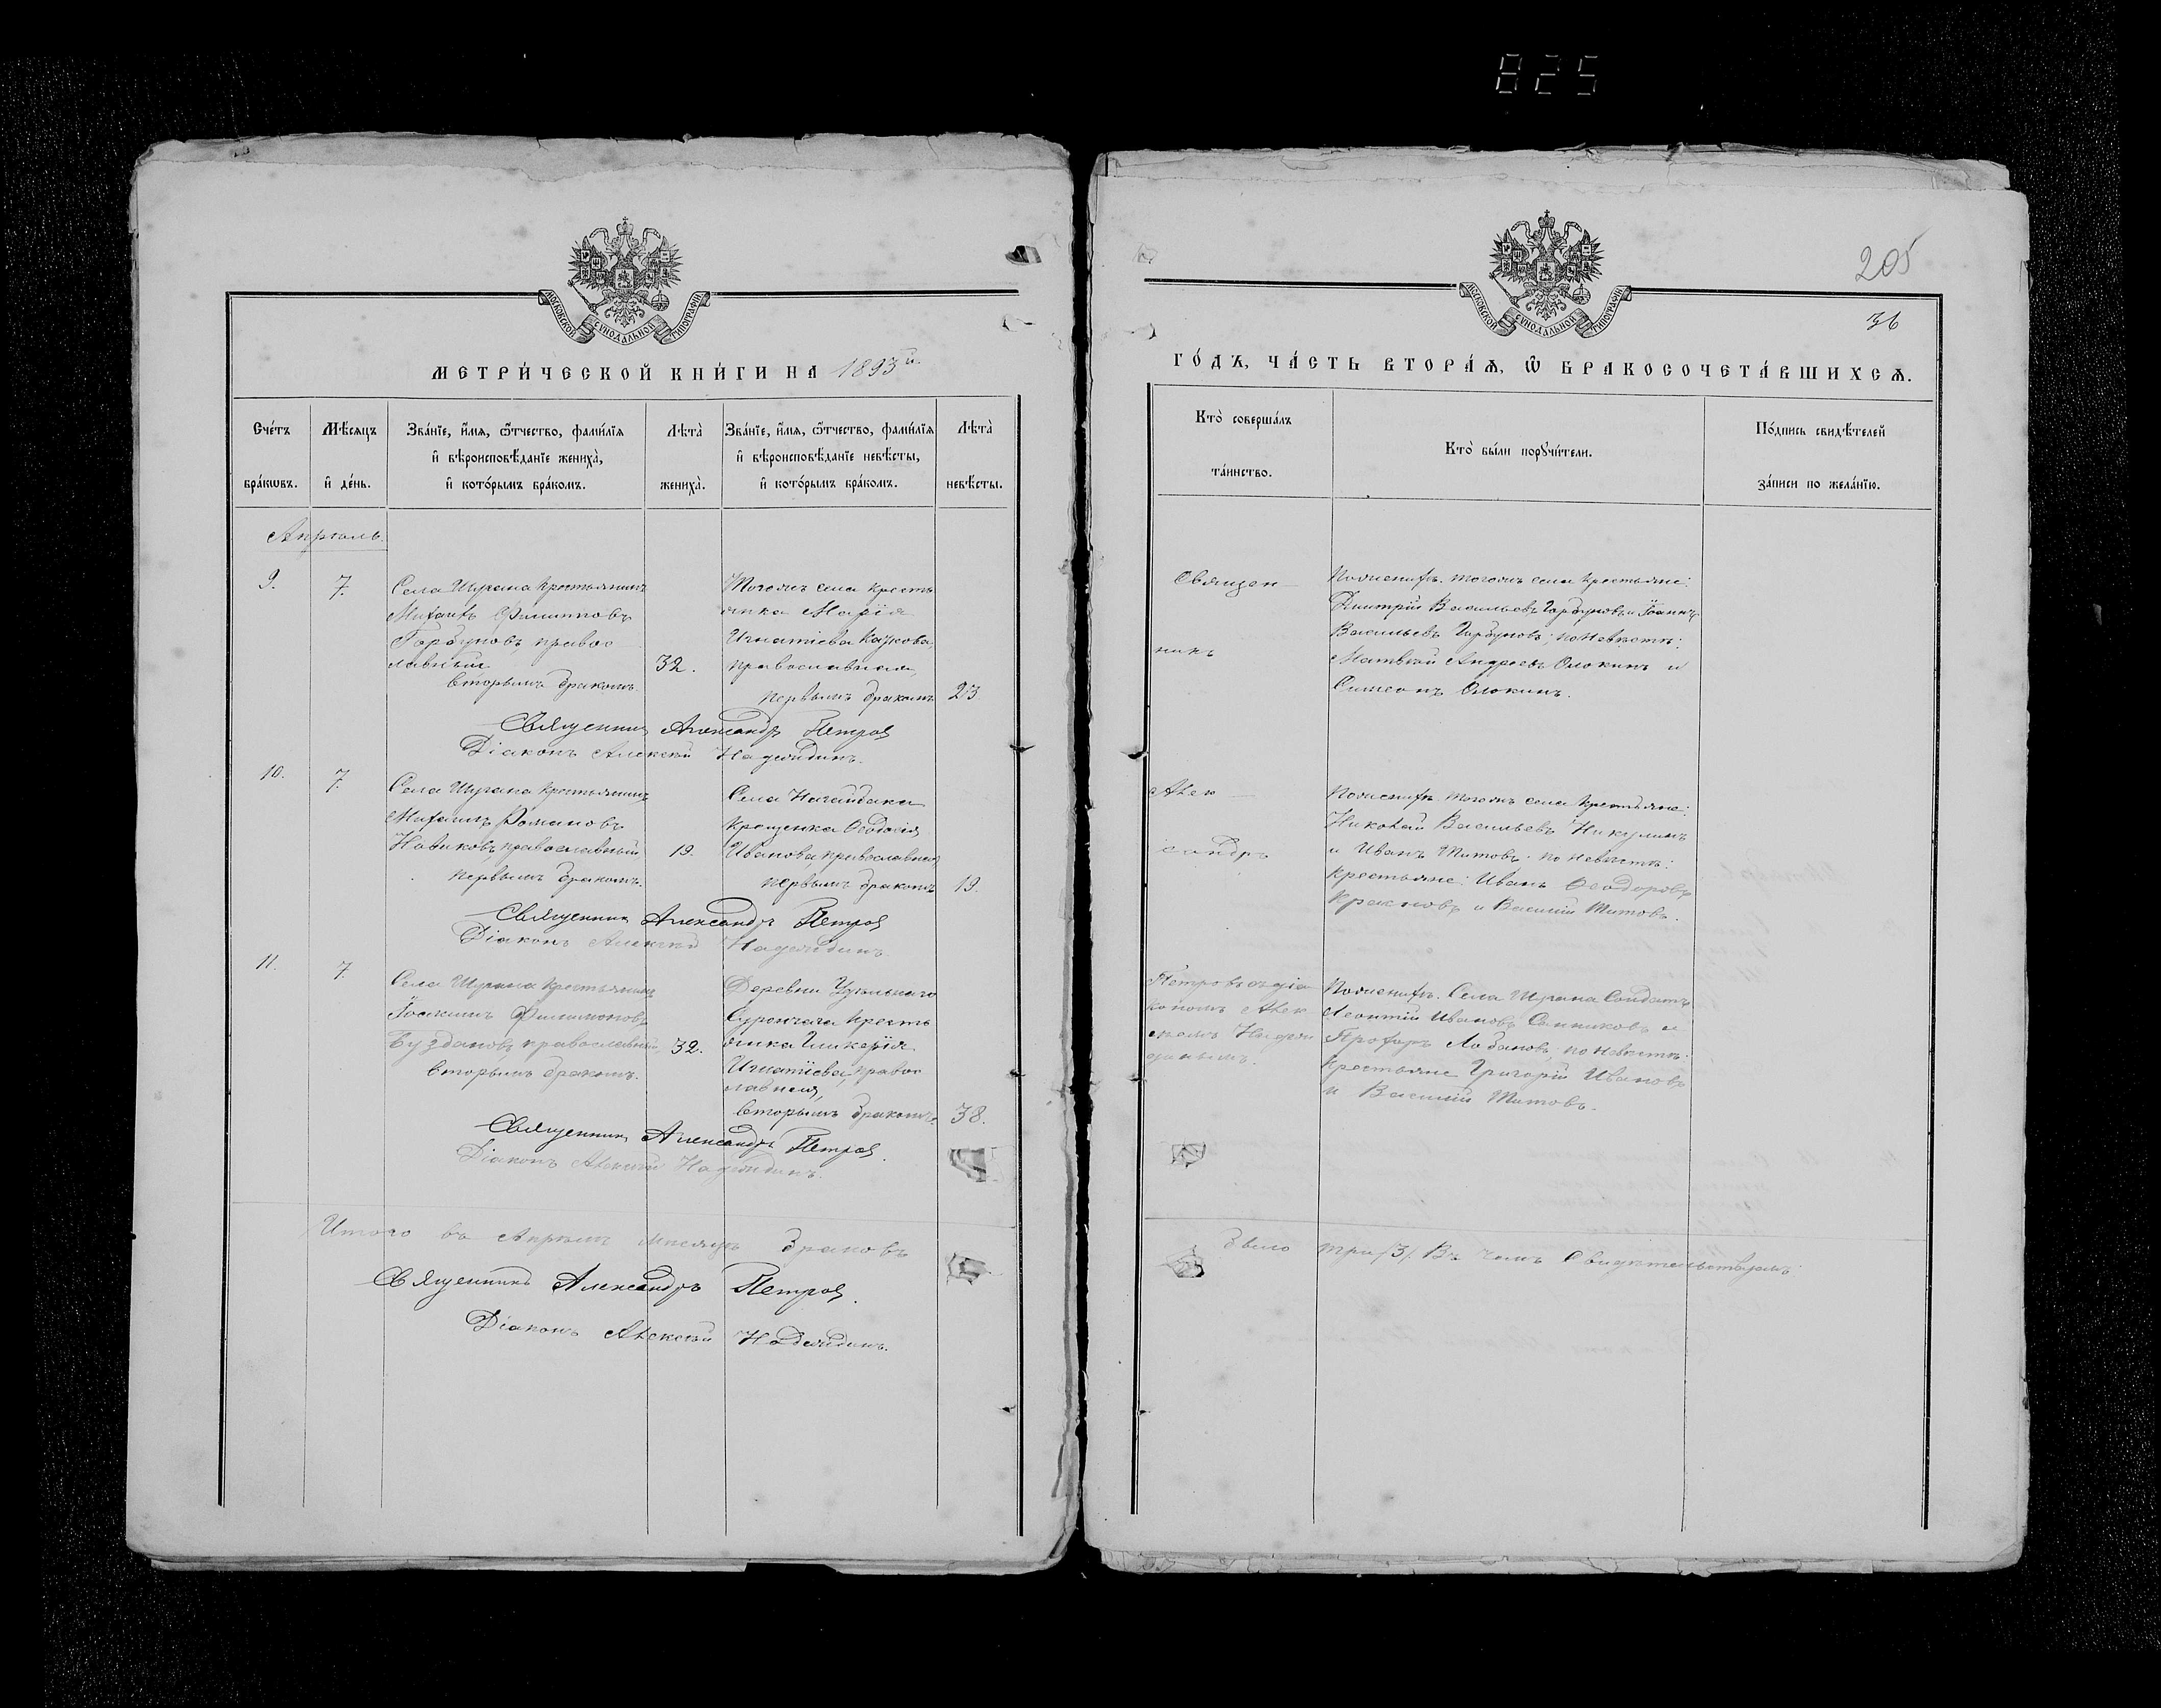 825
МОСКОВСКОЙ СѴНОДАЛЬНОЙ ТИПОГРАФІИ
МЕТРИ́ЧЕСКОЙ КНИ́ГИ НА 1893й
Сче́тъ бра́кѡвъ.
Мѣ́сяцъ и҆ де́нь.
Зва́нїе, и҆́мѧ, ѻ҆́тчество, фами́лїѧ и҆ вѣроисповѣ́данїе жениха̀, и҆ кото́рымъ бра́комъ.
Лѣта̀ жениха̀.
Зва́нїе, и҆́мѧ, ѻ҆́тчество, фами́лїѧ и҆ вѣроисповѣ́данїе невѣ́сты, и҆ кото́рымъ бра́комъ.
Лѣта̀ невѣ́сты.
Апрѣль.
9.
7.
Села Шурана крестьянинъ
Михаилъ Филипповъ
Горбуновъ, правос
лавный
вторымъ бракомъ.
32.
Тогожъ села кресть
янка Марія
Игнатіева
православная,
первымъ бракомъ
23
Священникъ Александръ Петровъ
Діаконъ Алексѣй Надеждинъ.
10.
7.
Села Шурана крестьянинъ
Михаилъ Романовъ
Новиковъ, православный
первымъ бракомъ.
19.
Села
крещенка Ѳеодосія
Иванова православная
первымъ бракомъ
19.
Священникъ Александръ Петровъ
Діаконъ Алексѣй Надеждинъ
11.
7.
Села Шурана крестьянинъ
Іоакимъ Филимоновъ
православный,
вторымъ бракомъ.
32.
Деревни
кресть
янка Гликерія
Игнатіева, правос
лавная,
вторымъ бракомъ.
38.
Священникъ Александръ Петровъ.
Діаконъ Алексѣй Надеждинъ.
Итого въ Апрѣлѣ мѣсяцѣ браковъ
Священникъ Александръ Петровъ.
Діаконъ Алексѣй Надеждинъ.
205
МОСКОВСКОЙ СѴНОДАЛЬНОЙ ТИПОГРАФІИ
36
ГО́ДЪ, ЧА́СТЬ ВТОРА́Ѧ, Ѽ БРАКОСОЧЕТА́ВШИХСѦ.
Кто̀ соверша́лъ та́инство.
Кто̀ бы́ли порꙋчи́тели.
По́дпись свидѣ́телей за́писи по жела́нїю.
Священ
никъ
Алек
сандръ
Петровъ съ діа
кономъ Алек
сѣемъ Надеж
динымъ.
По женихѣ. тогожъ села крестьяне:
Димитрій Васильевъ Горбуновъ и Іоаннъ
Васильевъ Горбуновъ; по невѣстѣ:
Матвѣй Андреевъ Олокинъ и
Симеонъ Олокинъ.
По женихѣ. тогожъ села крестьяне:
Николай Васильевъ Никулинъ
и Иванъ Титовъ; по невѣстѣ:
крестьяне: Иванъ Ѳеодоровъ
и Василій Титовъ.
По женихѣ. Села Шурана Солдатъ
Леонтій Ивановъ Санниковъ и
Прохоръ Лобановъ; по невѣстѣ:
крестьяне Григорій Ивановъ
и Василій Титовъ.
было три /3/. Въ чемъ свидѣтельствуемъ: